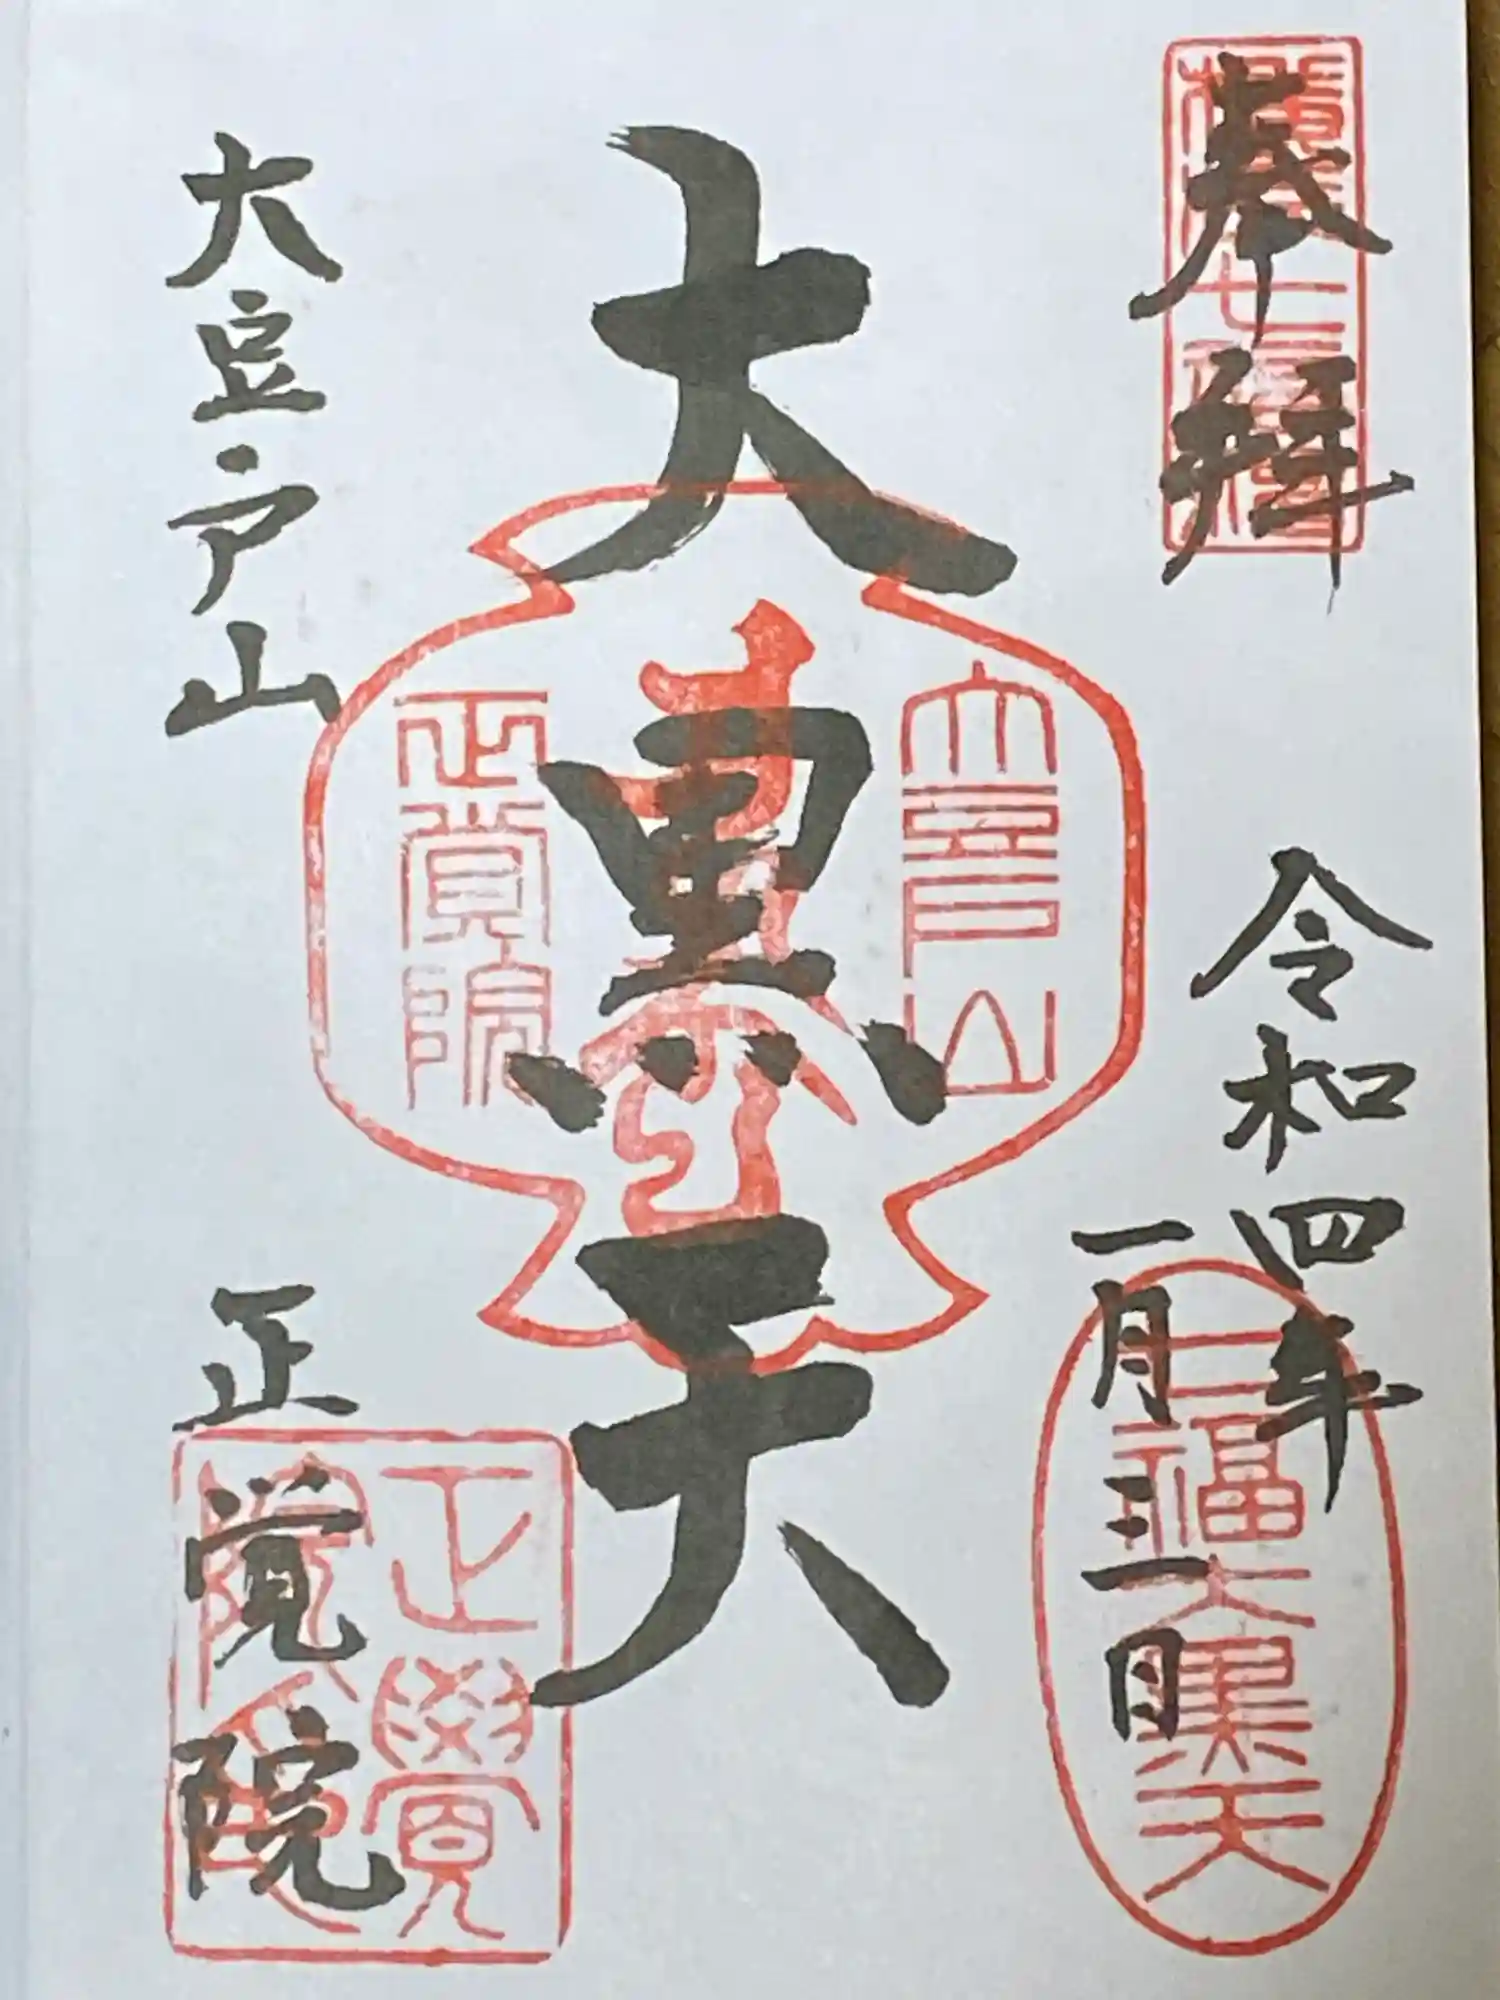 奉拝
令和四年
一月三日
福大黒天
大黒天
大豆戸山
正覚院
大豆戸山
正覚院
正覺
院